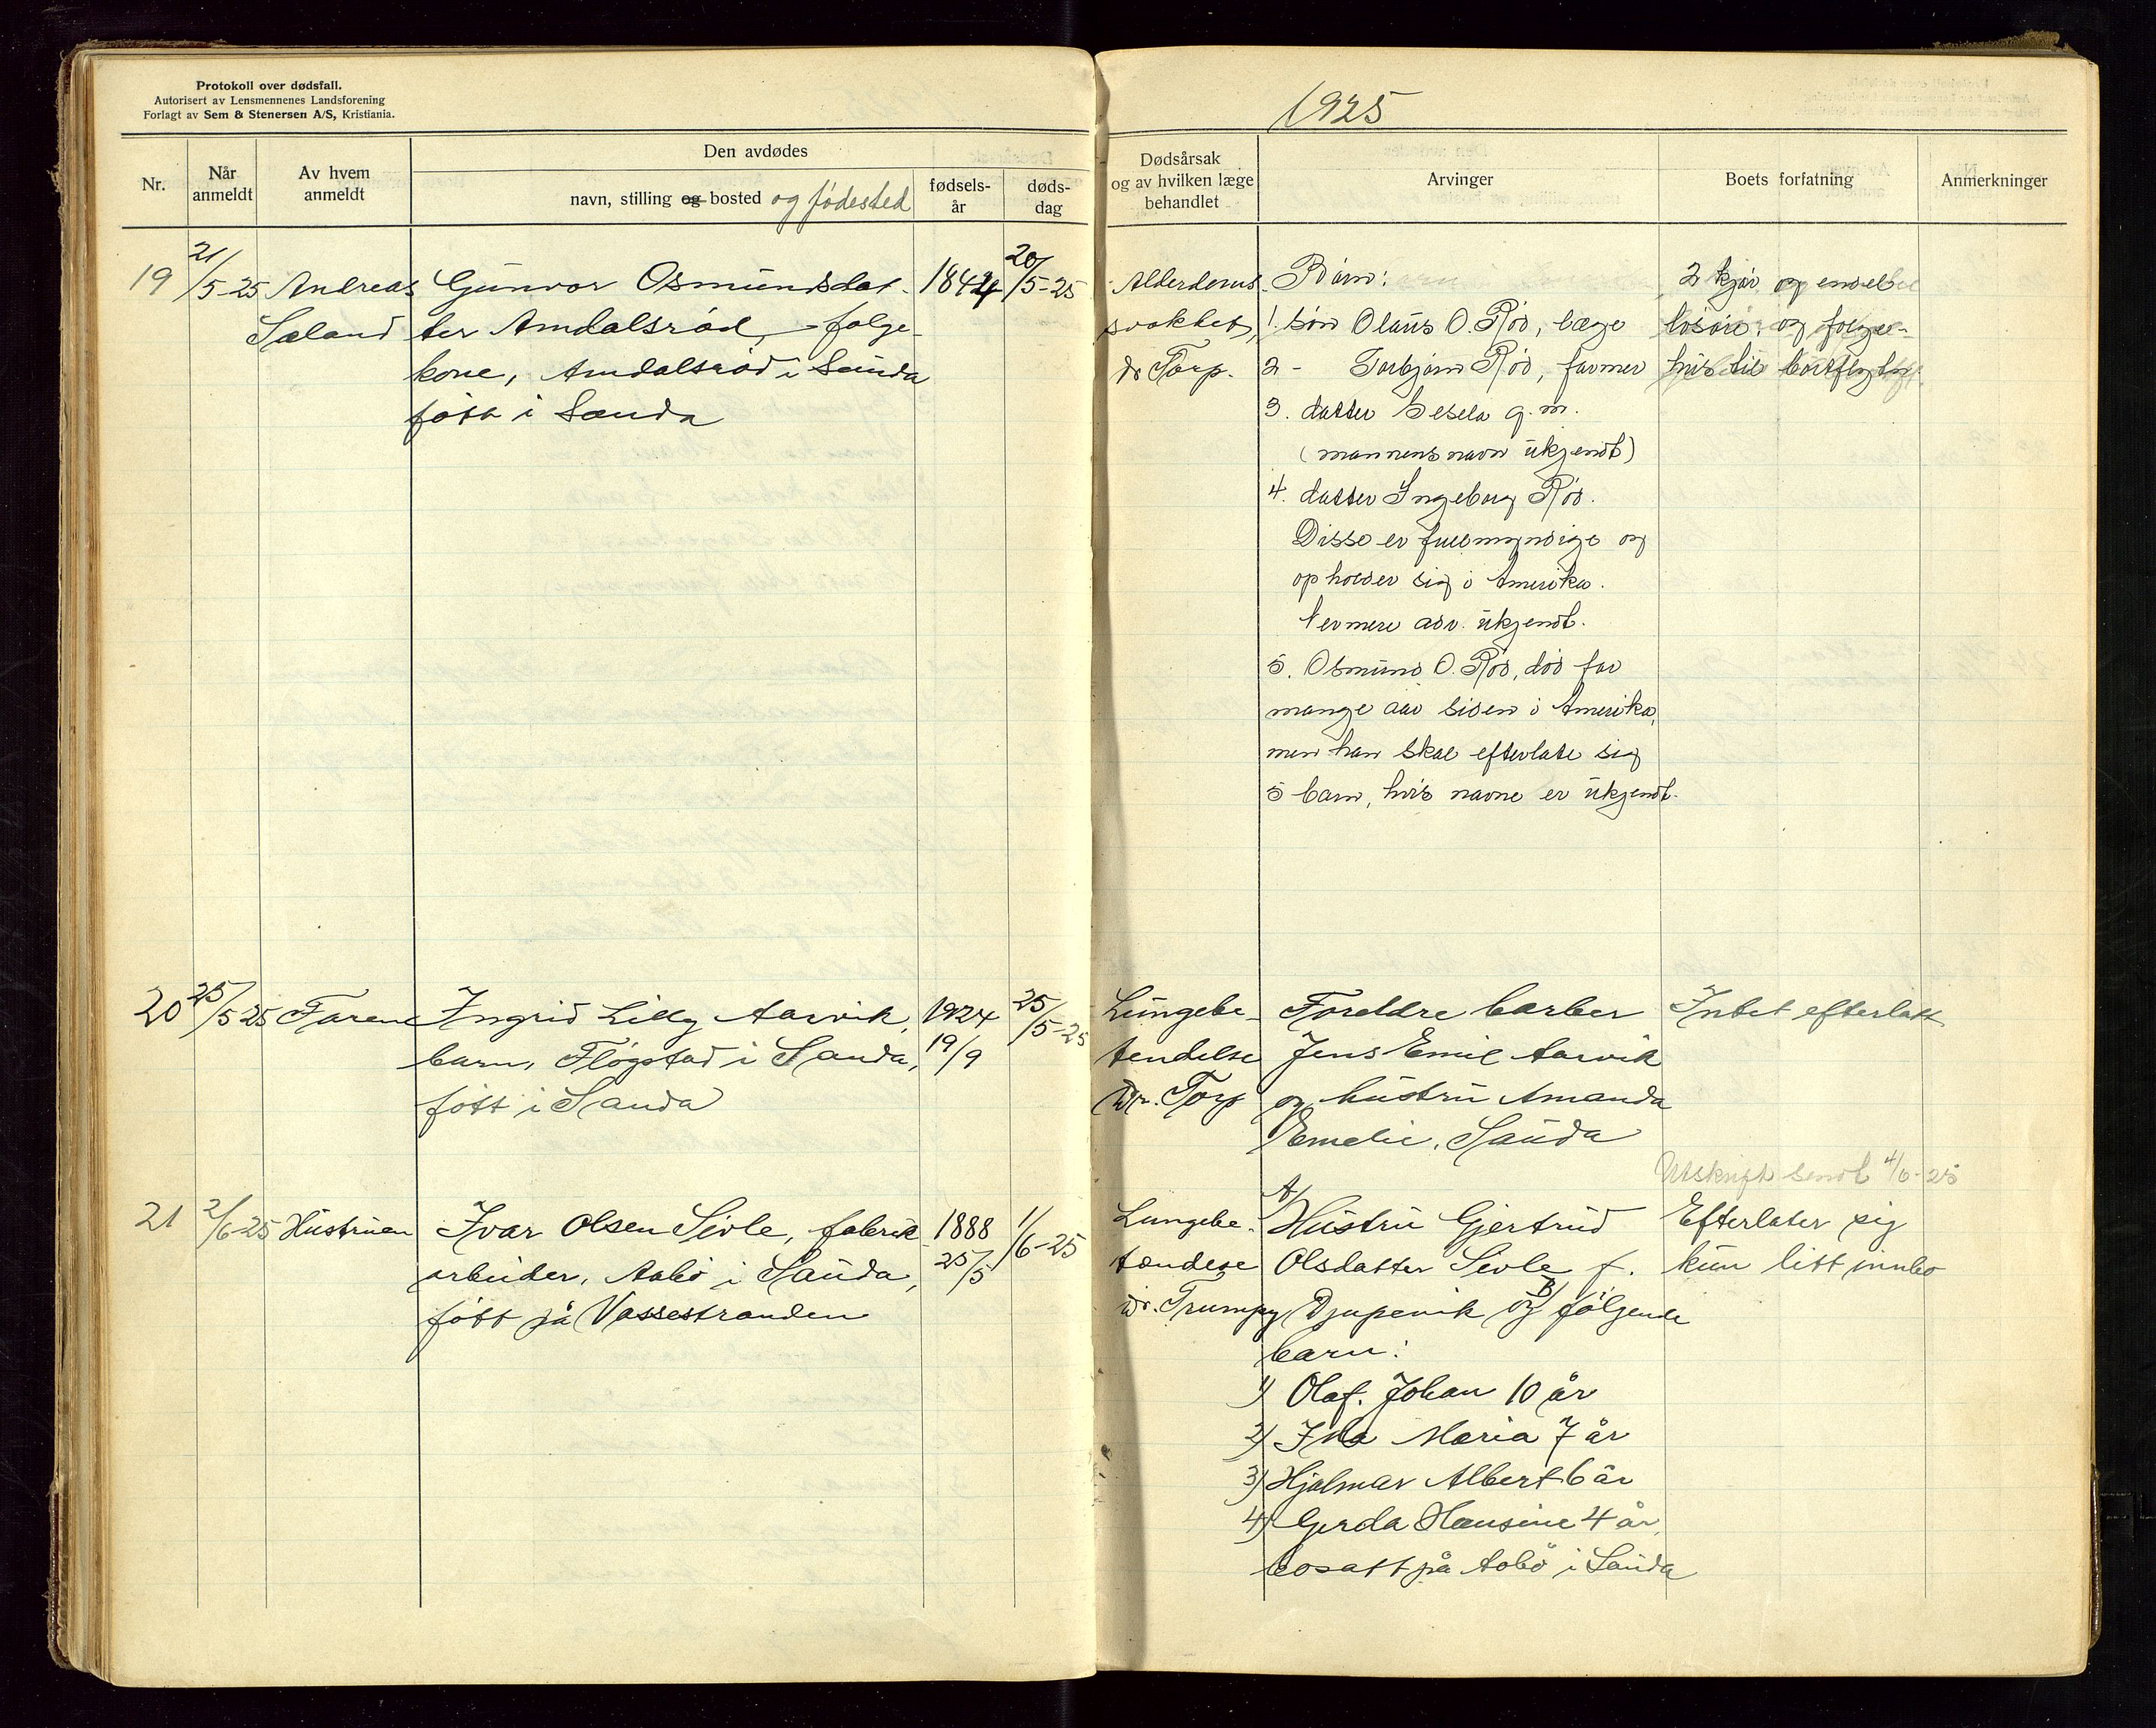 Protokoll over dødsfall.
Autorisert av Lensmennenes Landsforening
Forlagt av Sem & Stenersen A/S, Kristiania.
1925
Nr.
Når
anmeldt
Av hvem
anmeldt
Den avdødes
navn, stilling og bosted og fødested
fødsels-
år
døds-
dag
Dødsårsak
og av hvilken læge
behandlet
Arvinger
Boets forfatning
Anmerkninger
19
21/5-25
Andreas
Sæland
Gunvor Osmundsdat-
ter Amdalsrød, følge-
kone, Amdalsrød i Sauda
født i Sauda
1844
20/5-25
Alderdoms-
svakhet,
dr Torp.
Børn:
1. søn Olaus O. Rød, læge
2 - Torbjørn Rød, farmer
3. datter Sesela g.m.
(mannens navn ukjendt)
4. datter Ingeborg Rød.
Disse er fullmyndige og
opholder sig i Amerika.
Nermere adr. ukjendt.
5. Osmund O. Rød, død for
mange aar siden i Amerika,
men han skal efterlate sig
5 barn, hvis navne er ukjendt.
2 kjør og endel
løsøre og følge-
hus til bortflytn
20
25/5 25
Faren
Ingrid Lilly Aarvik,
barn, Fløgstad i Sauda,
født i Sauda
1924
19/9
25/5-25
Lungebe-
tendelse
Dr. Torp
Foreldre barber
Jens Emil Aarvik
og hustru Amanda
Emelie, Sauda
Intet efterlatt
Utskrift sendt 4/6-25
21
2/6-25
Hustruen
Ivar Olsen Sivle, fabrik
arbeider, Aabø i Sauda,
født på Vossestranden
1888
25/5
1/6-25
Lungebe-
tendelse
Dr. Trumpy
A/
Hustru Gjertrud
Olsdatter Sivle f.
Djupevik og B/ følgende
barn:
1) Olaf Johan 10 år
2) Ida Maria 7 år
3) Hjalmar Albert 6 år
4) Gerda Hansine 4 år,
bosatt på Aabø i Sauda
Efterlater sig
kun litt innbo